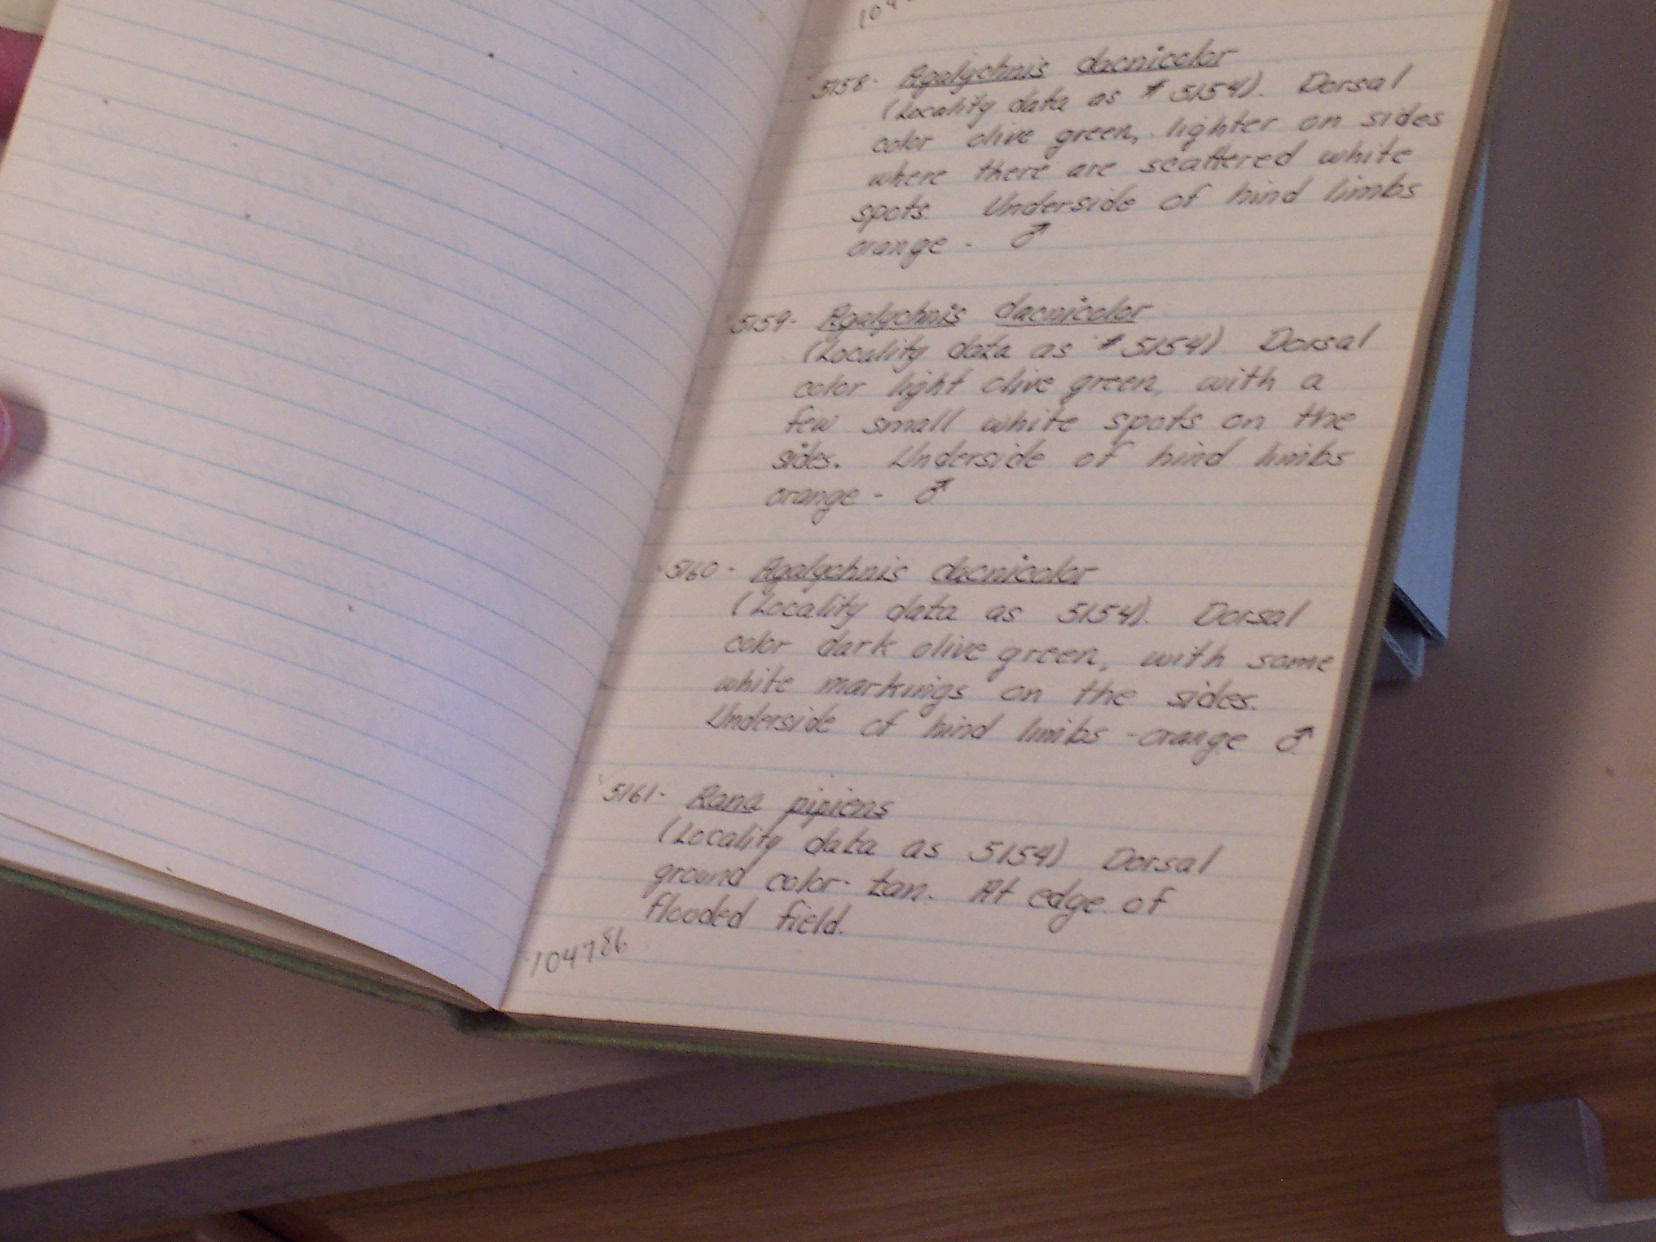 104
5158- Agalychnis dacnicolor
(Locality data as # 5154). Dorsal
color olive green, lighter on sides
where there are scattered white
spots. Underside of hind limbs
orange - ♂
5159- Agalychnis dacnicolor
(Locality data as # 5154) Dorsal
color light olive green, with a
few small white spots on the
sides. Underside of hind limbs
orange - ♂
5160- Agalychnis dacnicolor
(Locality data as 5154). Dorsal
color dark olive green, with some
white markings on the sides.
Underside of hind limbs -orange ♂
5161- Rana pipiens
(Locality data as 5154) Dorsal
ground color- tan. At edge of
flooded field.
104786